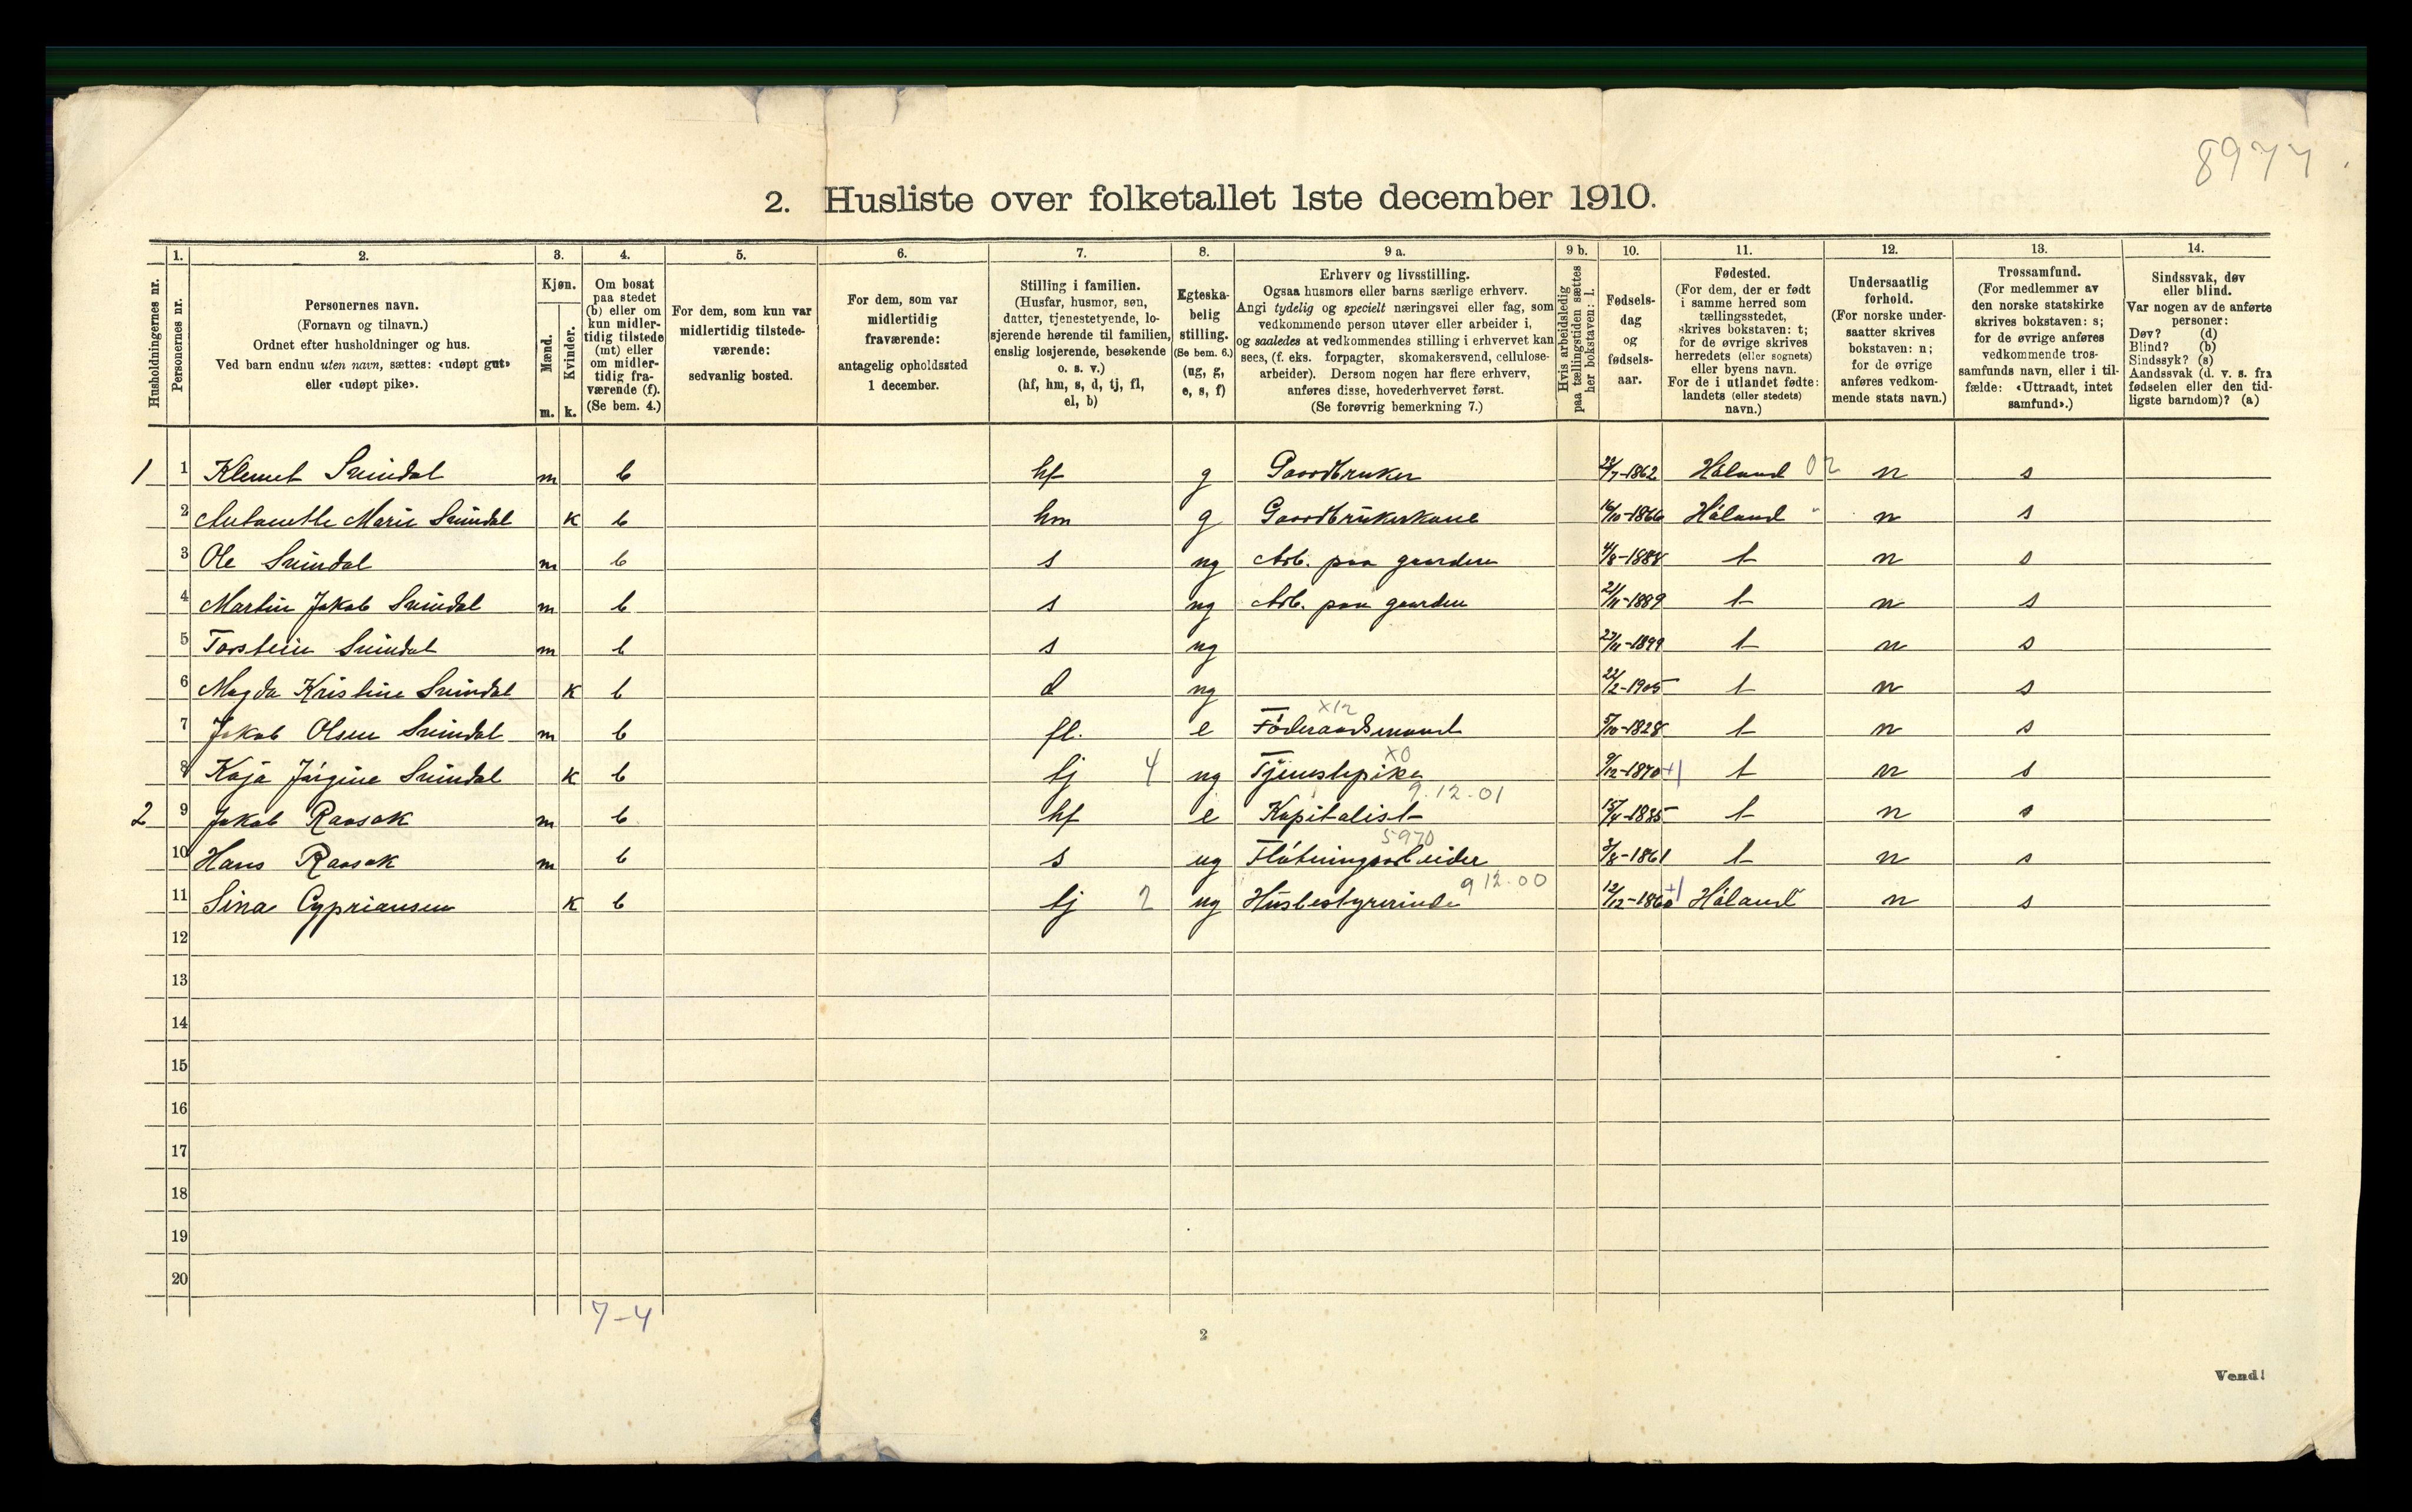 8977
2. Husliste over folketallet 1ste december 1910.
Husholdningernes nr.
1.
Personernes nr.
2.
Personernes navn.
(Fornavn og tilnavn.)
Ordnet efter husholdninger og hus.
Ved barn endnu uten navn, sættes: «udøpt gut»
eller «udøpt pike».
3.
Kjøn.
Mænd.
m.
Kvinder.
k.
4.
Om bosat
paa stedet
(b) eller om
kun midler-
tidig tilstede
(mt) eller
om midler-
tidig fra-
værende (f).
(Se bem. 4.)
5.
For dem, som kun var
midlertidig tilstede-
værende:
sedvanlig bosted.
6.
For dem, som var
midlertidig
fraværende:
antagelig opholdssted
1 december.
7.
Stilling i familien.
(Husfar, husmor, søn,
datter, tjenestetyende, lo-
sjerende hørende til familien,
enslig losjerende, besøkende
o. s. v.)
(hf, hm, s, d, tj, fl,
el, b)
8.
Egteska-
belig
stilling.
(Se bem. 6.)
(ug, g,
e, s, f)
9 a.
Erhverv og livsstilling.
Ogsaa husmors eller barns særlige erhverv.
Angi tydelig og specielt næringsvei eller fag, som
vedkommende person utøver eller arbeider i,
og saaledes at vedkommendes stilling i erhvervet kan
sees, (f. eks. forpagter, skomakersvend, cellulose-
arbeider). Dersom nogen har flere erhverv,
anføres disse, hovederhvervet først.
(Se forøvrig bemerkning 7.)
9 b.
Hvis arbeidsledig
paa tællingstiden sættes
her bokstaven: l.
10.
Fødsels-
dag
og
fødsels-
aar.
11.
Fødested.
(For dem, der er født
i samme herred som
tællingsstedet,
skrives bokstaven: t;
for de øvrige skrives
herredets (eller sognets)
eller byens navn.
For de i utlandet fødte:
landets (eller stedets)
navn.)
12.
Undersaatlig
forhold.
(For norske under-
saatter skrives
bokstaven: n;
for de øvrige
anføres vedkom-
mende stats navn.)
13.
Trossamfund.
(For medlemmer av
den norske statskirke
skrives bokstaven: s;
for de øvrige anføres
vedkommende tros-
samfunds navn, eller i til-
fælde: «Uttraadt, intet
samfund».)
14.
Sindssvak, døv
eller blind.
Var nogen av de anførte
personer:
Døv? (d)
Blind? (b)
Sindssyk? (s)
Aandssvak (d. v. s. fra
fødselen eller den tid-
ligste barndom)? (a)
1 1 Klemet Svindal m b hf g Gaardbruker 28/7-1862 Håland 02 n s
2 Antonette Marie Svindal k b hm g Gaardbrukerkone 16/10-1866 Håland " n s
3 Ole Svindal m b s ug Arb. paa gaarden 4/8-1888 t n s
4 Martin Jakob Svindal m b s ug Arb. paa gaarden 21/11-1889 t n s
5 Torstein Svindal m b s ug 27/11-1899 t n s
6 Magda Kristine Svindal k b d ug 22/2-1905 t n s
x12
7 Jakob Olsen Svindal m b fl. e Föderaadsmand 5/10-1828 t n s
x0
8 Kaja Jörgine Svindal k b tj 4 ug Tjenestepike 9/12-1870 +1 t n s
9.12.01
2 9 Jakob Raasok m b hf e Kapitalist 15/4-1835 t n s
5970
10 Hans Raasok m b s ug Flötningsarbeider 3/8-1861 t n s
9 12.00
11 Sina Cypriansen k b tj 2 ug Husbestyrerinde 12/12-1860 +1 Håland n s
12
13
14
15
16
17
18
19
20
7-4
2
Vend!